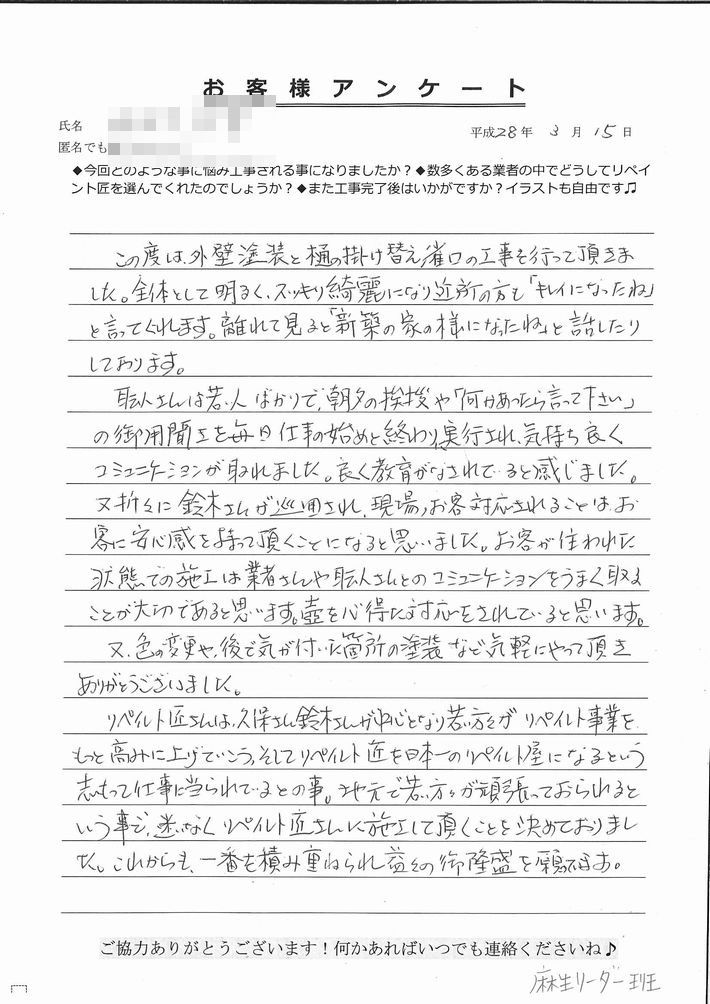 お客様アンケート
氏名
平成28年 3月 15日
匿名でも
◆今回どのような事に悩み工事される事になりましたか？◆数多くある業者の中でどうしてリペイ
ント匠を選んでくれたのでしょうか？◆また工事完了後はいかがですか？イラストも自由です♫
この度は、外壁塗装と樋の掛け替え、雀口の工事を行って頂きま
した。全体として明るく、スッキリ綺麗になり近所の方も「キレイになったね」
と言ってくれます。離れて見ると「新築の家の様になったね」と話したり
しております。
職人さんは若い人ばかりで、朝夕の挨拶や「何かあったら言って下さい」
の御用聞きを毎日仕事の始めと終わり、実行され、気持ち良く
コミュニケーションが取れました。良く教育がなされていると感じました。
又折々に鈴木さんが巡回され、現場、お客対応されることは、お
客に安心感を持って頂くことになると思いました。お客が住われた
状態での施工は業者さんや職人さんとのコミュニケーションをうまく取る
ことが大切であると思います。壺を心得た対応をされていると思います。
又、色の変更や、後で気が付いた箇所の塗装など気軽にやって頂き
ありがとうございました。
リペイルト匠さんは、久保さん鈴木さんが中心となり若い方々がリペイルト事業を
もっと高みに上げていこう、そしてリペイルト匠を日本一のリペイルト屋になるという
志もって仕事に当られているとの事。地元で若い方々が頑張っておられると
いう事で、迷いなくリペイルト匠さんに施工して頂くことを決めておりまし
た。これからも、一番を積み重ねられ益々の御隆盛を願
ご協力ありがとうございます！何かあればいつでも連絡くださいね♪
麻生リーダー班